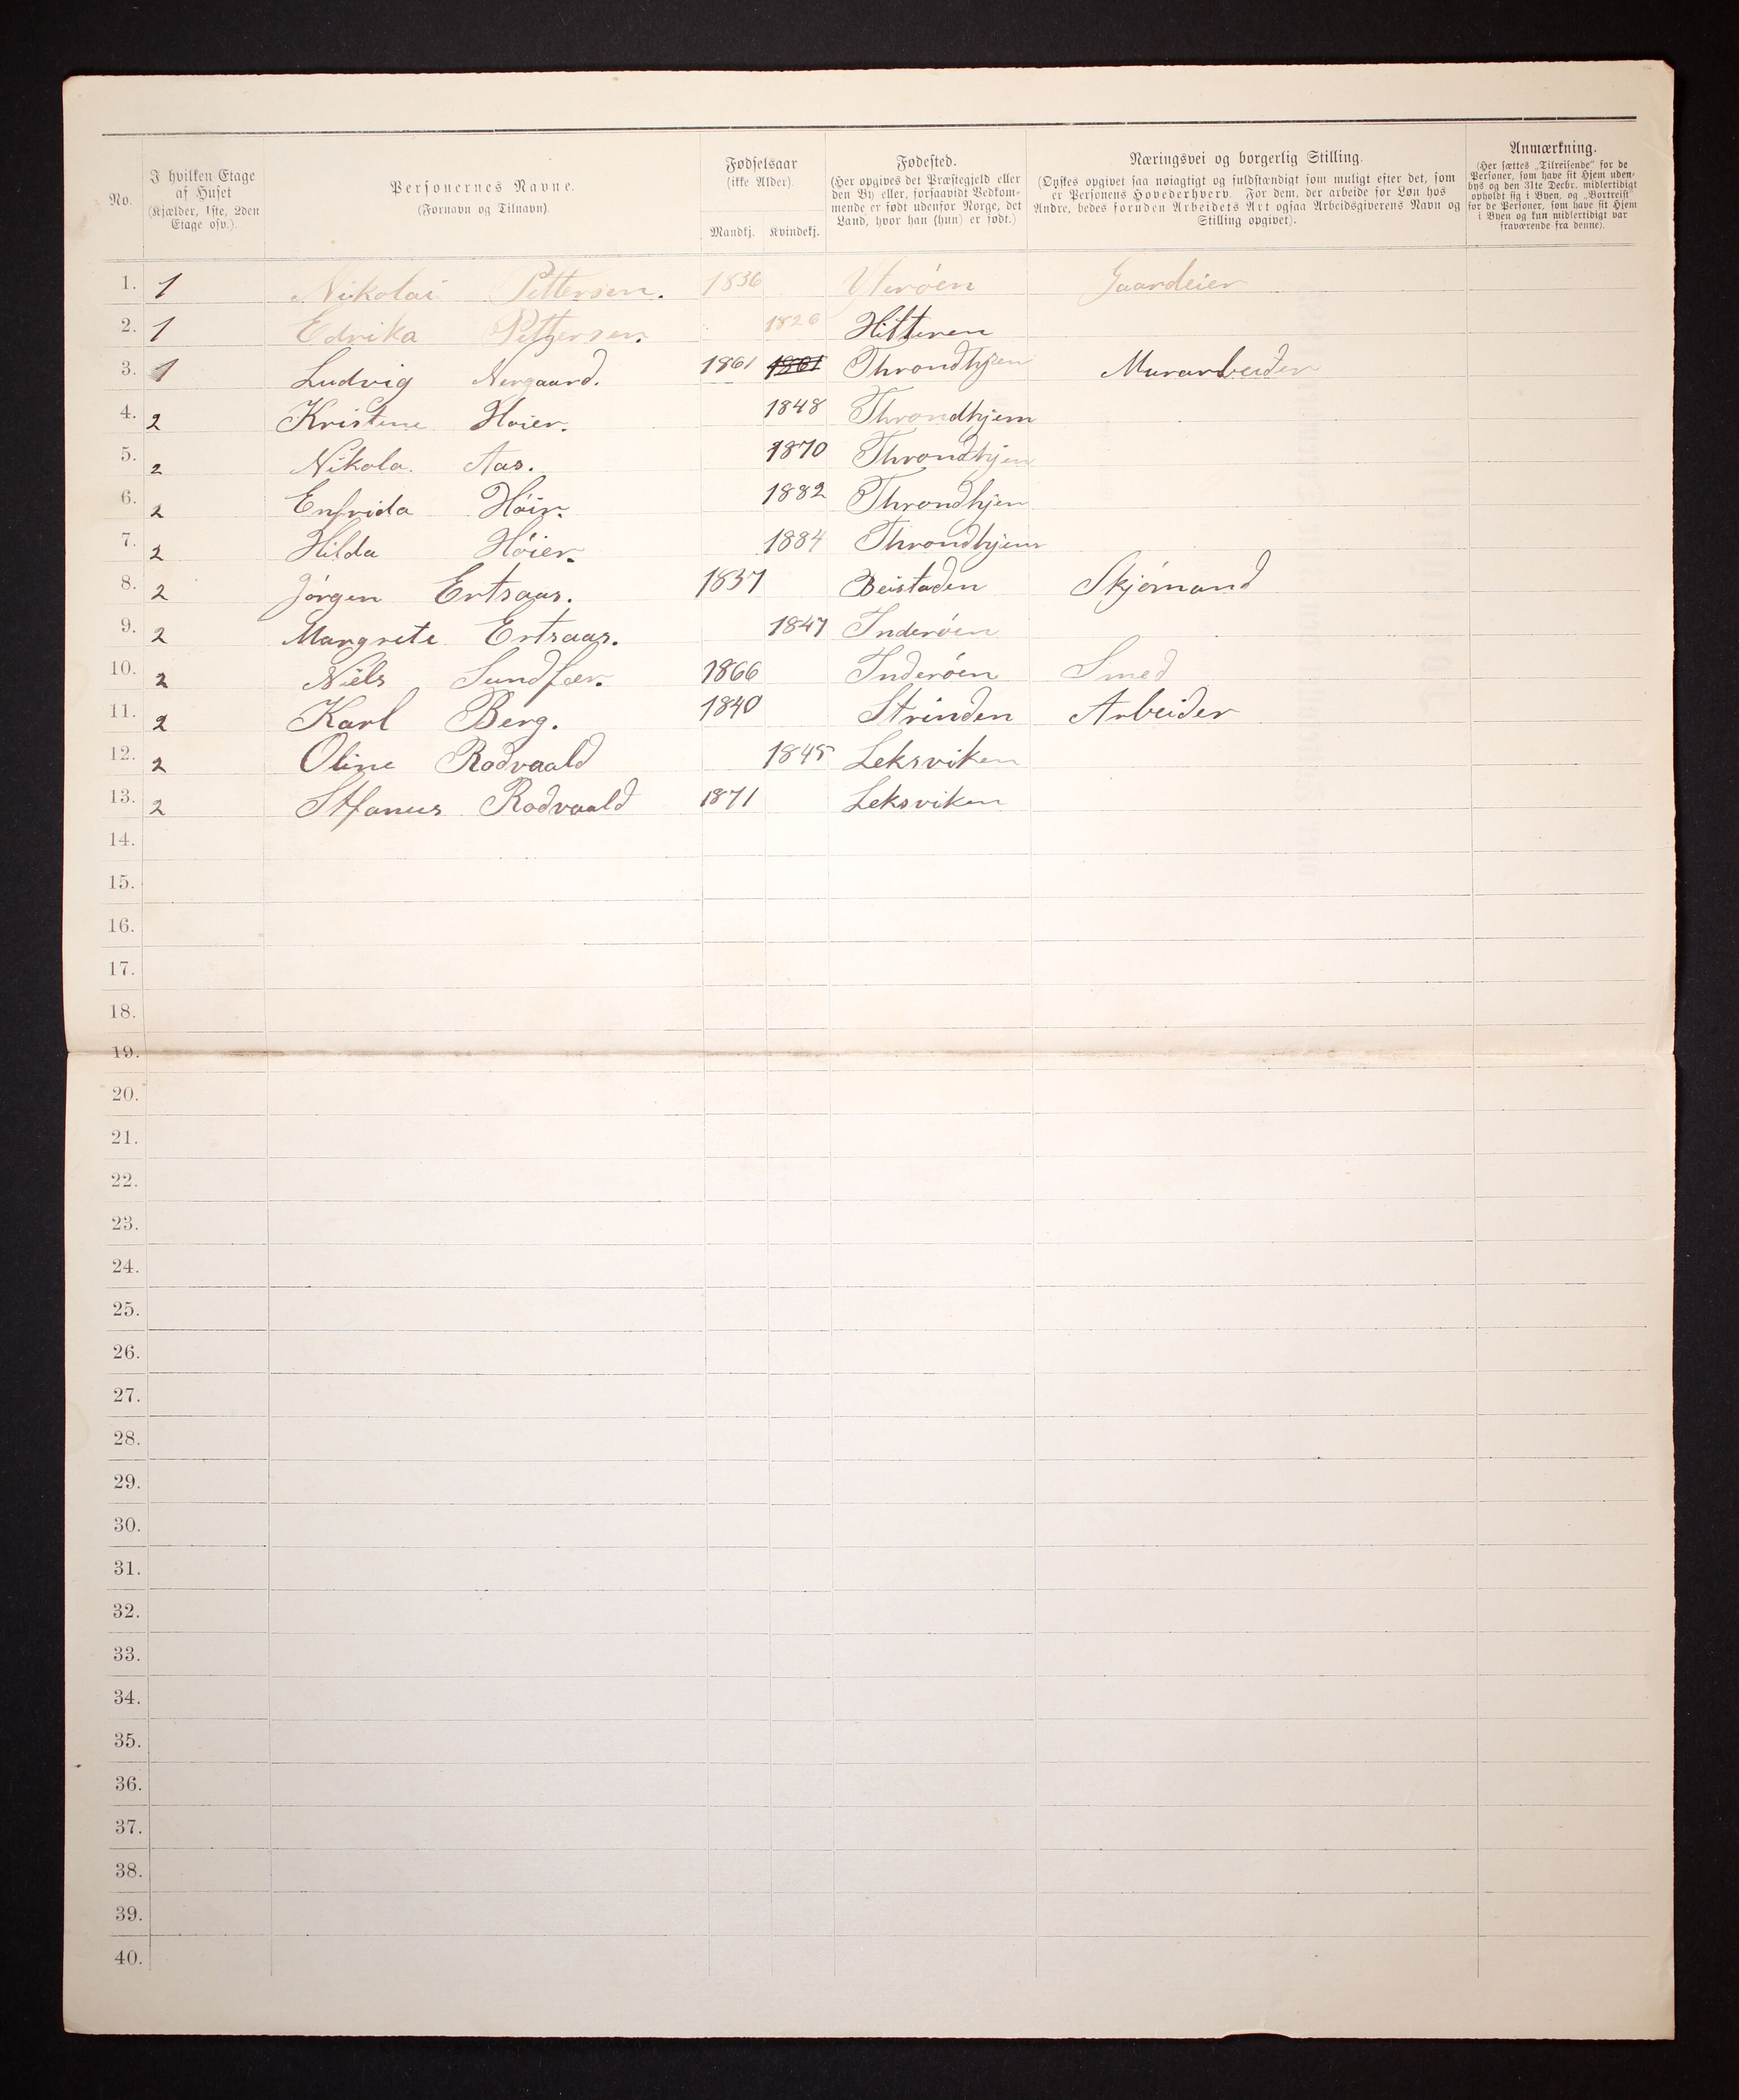 No.
I hvilken Etage
af Huset
(Kjælder, 1ste, 2den
Etage osv.).
Personernes Navne.
(Fornavn og Tilnavn).
Fødselsaar
(ikke Alder).
Mandkj. Kvindekj.
Fødested.
(Her opgives det Præstegjeld eller
den By eller, forsaavidt Vedkom-
mende er født udenfor Norge, det
Land, hvor han (hun) er født.)
Næringsvei og borgerlig Stilling.
(Ønskes opgivet saa nøiagtigt og fuldstændigt som muligt efter det, som
er Personens Hovederhverv. For dem, der arbeide for Løn hos
Andre, bedes foruden Arbeidets Art ogsaa Arbeidsgiverens Navn og
Stilling opgivet).
Anmærkning.
(Her sættes „Tilreisende" for de
Personer, som have sit Hjem uden-
bys og den 31te Decbr. midlertidigt
opholdt sig i Byen, og „Bortreist"
for de Personer, som have sit Hjem
i Byen og kun midlertidigt var
fraværende fra denne).
1. 1 Nikolai Pettersen. 1836 Yterøen Gaardeier
2. 1 Edvika Pettersen. 1826 Hitteren
3. 1 Ludvig Nergaard. 1861 1861 Throndhjem Murarbeider
4. 2 Kristine Høier. 1848 Throndhjem
5. 2 Nikola. Aas. 1870 Throndhjem
6. 2 Enfrida Høir. 1882 Throndhjen
7. 2 Hilda Høier. 1884 Throndhjem
8. 2 Jørgen Ertsaas. 1837 Beistaden Skjømand
9. 2 Margrete Ertsaas. 1847 Inderøen
10. 2 Niels Sundfær. 1866 Inderøen Smed
11. 2 Karl Berg. 1840 Strinden Arbeider
12. 2 Oline Rodvaald 1845 Leksviken
13. 2 Stfanus Rodvaald 1871 Leksviken
14.
15.
16.
17.
18.
19.
20.
21.
22.
23.
24.
25.
26.
27.
28.
29.
30.
31.
32.
33.
34.
35.
36.
37.
38.
39.
40.